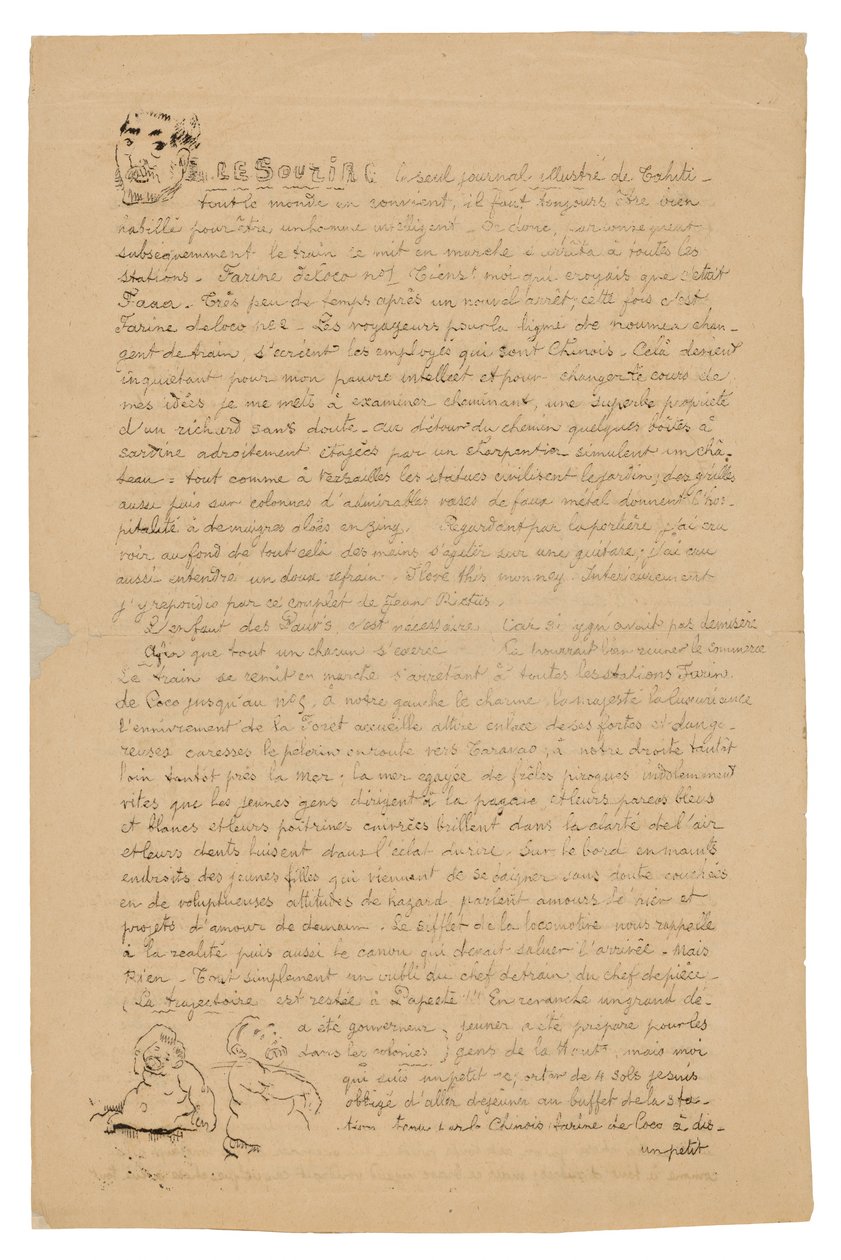 LE SOURIRE le seul journal illustré de Tahiti -
tout le monde en convient, il faut toujours être bien
habillé pour être un homme intelligent - Or donc, par conséquent
subsequemment le train se mit en marche s'arrêta à toutes les
stations - Farine de Coco no 1 Tiens! moi qui croyais que c'était
Faaa - Très peu de temps après un nouvel arrêt, cette fois c'est
Farine de coco no 2 - Les voyageurs pour la ligne de noumea chan-
gent de train, s'écrient les employés qui sont Chinois - Celà devient
inquiétant pour mon pauvre intellect et pour changer le cours de
mes idées je me mets à examiner cheminant, une superbe propriété
d'un richard sans doute - au détour du chemin quelques boîtes à
sardine adroitement étagées par un charpentier simulent un châ-
teau = tout comme à Versailles les statues civilisent le jardin; des grilles
aussi puis sur colonnes d'admirables vases de faux métal donnent l'hos-
pitalité à de maigres aloës en zing. Regardant par la portière j'ai cru
voir au fond de tout celà des mains s'agiter sur une guitare; j'ai cru
aussi entendre un doux refrain - I love this monney. Intérieurement
j'y repondis par ce couplet de Jean Rictus.
L'enfant des Pauv's, c'est necessaire Car si ygn'avait pas de misère
Afin que tout un chacun s'exerce Ça pourrait bien ruiner le commerce
Le train se remit en marche s'arretant à toutes les stations Farine
de Coco jusqu'au no 5. à notre gauche le charme, la majesté la luxuriance
l'enivrement de la Foret accueille attire enlace de ses fortes et dange-
reuses caresses le pelerin en route vers Taravao; à notre droite tantôt
loin tantôt près la mer; la mer egayée de frêles pirogues indolemment
vites que les jeunes gens dirigent à la pagaie et leurs pareos bleus
et blancs et leurs poitrines cuivrées brillent dans la clarté de l'air
et leurs dents luisent dans l'éclat du rire. Sur le bord en maints
endroits des jeunes filles qui viennent de se baigner sans doute couchées
en de voluptueuses attitudes de hazard parlent amours de hier et
projets d'amour de demain. Le sifflet de la locomotive nous rappelle
à la realité puis aussi le canon qui devait saluer l'arrivée - Mais
Rien - Tout simplement un oubli du chef de train, du chef de pièce -
(La trajectoire est restée à Papeete !!! En revanche un grand dé-
a été gouverneur jeuner a été préparé pour les
dans les colonies gens de la Haute, mais moi
qui suis un petit reporter de 4 sols je suis
obligé d'aller dejeuner au buffet de la sta-
tion tenu par le Chinois farine de Coco à dis-
un petit